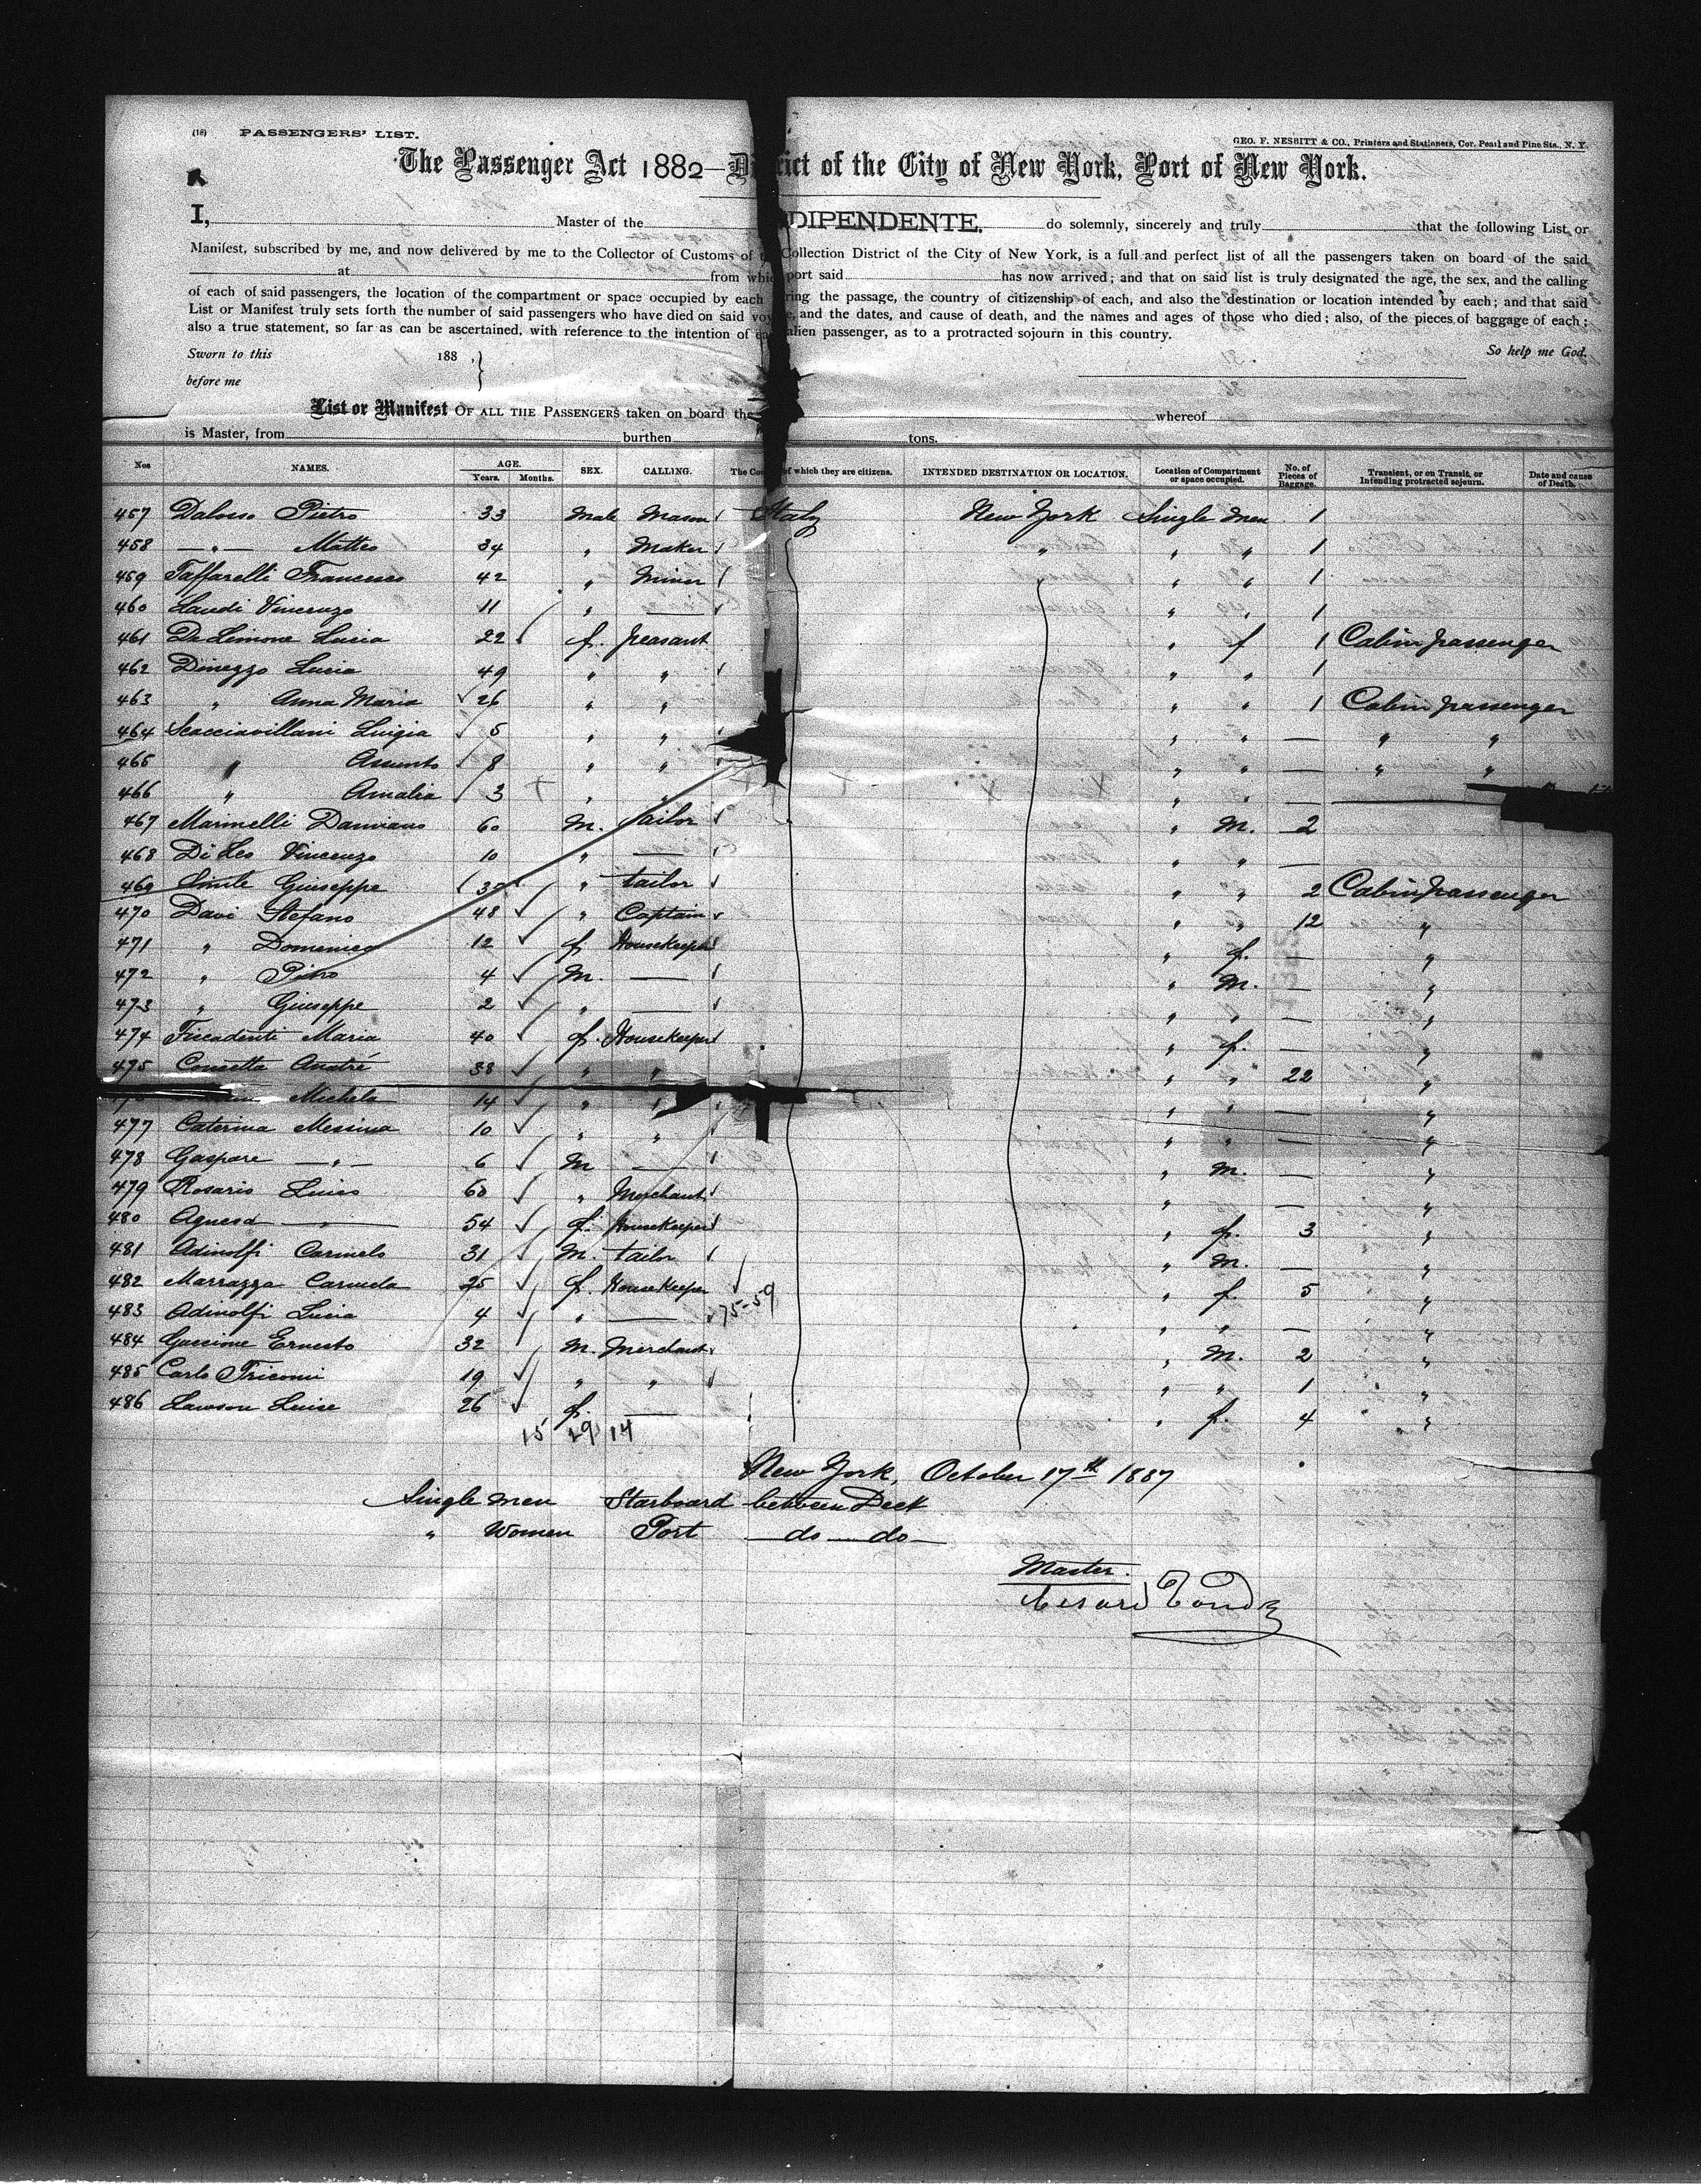 (16) PASSENGERS' LIST.
GEO. F. NESBITT & CO., Printers and Stationers, Cor. Pearl and Pine Sts., N. Y.
The Passenger Act 1882—District of the City of New York, Port of New York.
I, Master of the DIPENDENTE. do solemnly, sincerely and truly that the following List or
Manifest, subscribed by me, and now delivered by me to the Collector of Customs of Collection District of the City of New York, is a full and perfect list of all the passengers taken on board of the said
at from which port said has now arrived; and that on said list is truly designated the age, the sex, and the calling
of each of said passengers, the location of the compartment or space occupied by each ring the passage, the country of citizenship of each, and also the destination or location intended by each; and that said
List or Manifest truly sets forth the number of said passengers who have died on said voy e, and the dates, and cause of death, and the names and ages of those who died; also, of the pieces of baggage of each;
also a true statement, so far as can be ascertained, with reference to the intention of ea alien passenger, as to a protracted sojourn in this country.
Sworn to this 188 , } So help me God.
before me
List or Manifest OF ALL THE PASSENGERS taken on board the whereof
is Master, from burthen tons.
Nos NAMES. AGE. Years. Months. SEX. CALLING. The Cou of which they are citizens. INTENDED DESTINATION OR LOCATION. Location of Compartment or space occupied. No. of Pieces of Baggage. Transient, or on Transit, or Intending protracted sojourn. Date and cause of Death.
457 Dalosso Pietro 33 Male Mason Italy New York Single Men 1
458 —„— Matteo 34 „ Maker „ „ „ 1
459 Taffarelli Francesco 42 „ Miner „ „ 1
460 Laudi Vincenzo 11 „ — „ „ 1
461 De Simone Lucia 22 f. peasant „ f 1 Cabin passenger
462 Dinezzo Lucia 49 „ „ „ „ 1
463 „ Anna Maria 26 „ „ „ „ 1 Cabin passenger
464 Scacciavillani Luigia 5 „ „ „ „ — „ „
465 „ Assunto 8 „ „ „ „ — „ „
466 „ Amalia 3 „ „ „ „ —
467 Marinelli Damiano 60 M. Tailor „ M. 2
468 Di Leo Vincenzo 10 „ — „ „ —
469 Smile Giuseppe 30 „ tailor „ „ 2 Cabin passenger
470 Davi Stefano 48 „ Captain „ „ 12 „
471 „ Domenica 12 f. Housekeeper „ f. — „
472 „ Pietro 4 M. — „ M. — „
473 „ Giuseppe 2 „ — „ „ — „
474 Ficadenti Maria 40 f. Housekeeper „ f. — „
475 Consetta Anatré 38 „ „ „ „ 22 „
Michela 14 „ „ „ „ — „
477 Caterina Messina 10 „ „ „ „ — „
478 Gaspare —„— 6 M — „ M. — „
479 Rosario Luico 60 „ Merchant „ „ — „
480 Agnesa —„— 54 f. Housekeeper „ f. 3 „
481 Adinolfi Carmelo 31 M. tailor „ M. — „
482 Marrazza Carmela 25 f. Housekeeper „ f. 5 „
483 Adinolfi Lucia 4 „ — 75-59 „ „ — „
484 Guccione Ernesto 32 M. Merchant „ M. 2 „
485 Carlo Triconi 19 „ „ „ „ 1 „
486 Lawson Luise 26 f. — „ f. 4 „
15 29 14
New York, October 17th 1887
Single men Starboard between Deck
„ Women Port —do—do—
Master.